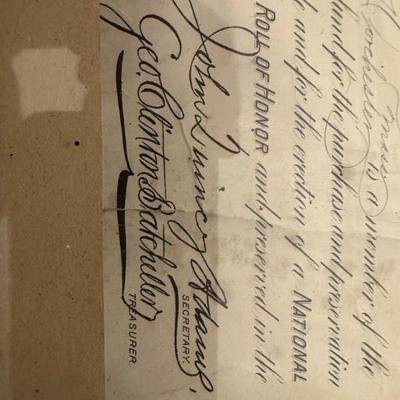 Mass
Dorchester is a member of the
fund for the purchase and preservation
and for the erection of a NATIONAL
ROLL OF HONOR and preserved in the
John Quincy Adams,
SECRETARY.
Geo. Clinton Batcheller
TREASURER.